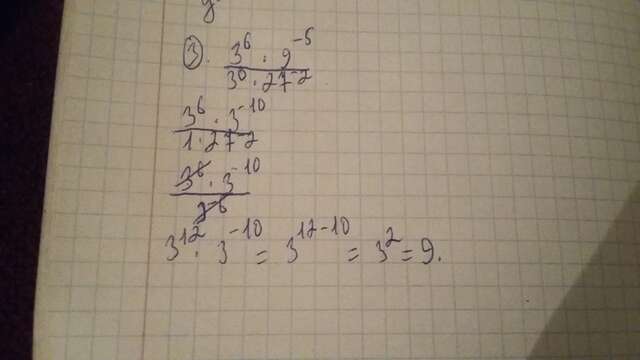 ③. 3⁶ · 9⁻⁵
3⁰ · 27⁻²
3⁶ · 3⁻¹⁰
1 · 27⁻²
3⁶ · 3⁻¹⁰
3⁻⁶
3¹² · 3⁻¹⁰ = 3¹²⁻¹⁰ = 3² = 9.